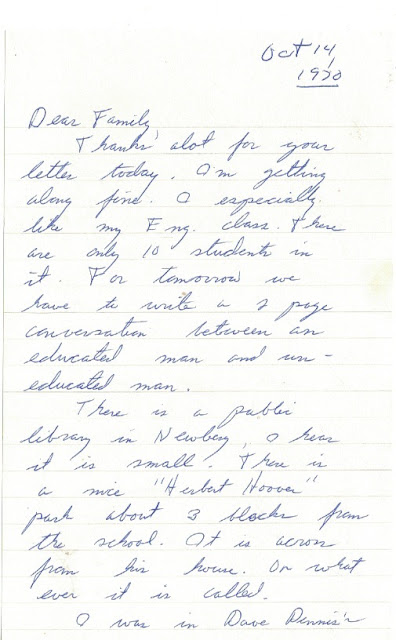 Oct 14,
1970
Dear Family
Thanks alot for your
letter today. I'm getting
along fine. I especially
like my Eng. class. There
are only 10 students in
it. For tomorrow we
have to write a 2 page
conversation between an
educated man and un-
educated man.
There is a public
library in Newberg, I hear
it is small. There is
a nice "Herbert Hoover"
park about 3 blocks from
the school. It is across
from his house. Or what
ever it is called.
I was in Dave Dennis'